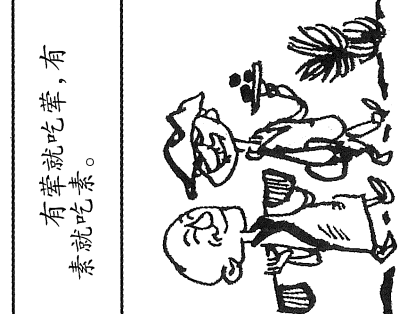 有荤就吃荤，有
素就吃素。